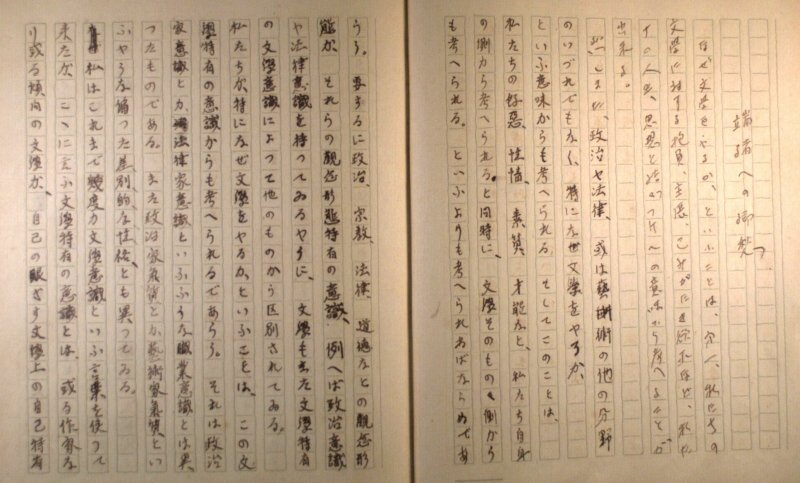 端緒への
なぜ文学をやるか、といふことは、
文学に対する抱負、主張、
の人生、思想と
出来る。
政治や法律、或は藝術の他の分野
のいづれでもなく、特になぜ文学をやるか、
といふ意味からも考へられる。そしてこのことは、
私たちの好悪、性情、素質、才能など、私たち自身
の側から考へられると同時に、文学そのものゝ側から
も考へられる。といふよりも考へられねばならぬであ
らう。要するに政治、宗教、法律、道徳などの観念形
態が、それらの観念形態特有の意識、例へば政治意識
や法律意識を持つてゐるやうに、文學もまた文學特有
の文學意識によつて他のものから区別されてゐる。
私たちが特になぜ文學をやるか、といふことは、この文
學特有の意識からも考へられるであらう。それは政治
家意識とか、法律家意識といふふうな職業意識とは異
つたものである。また政治家気質とか藝術家気質とい
ふやうな偏つた差別的な性格とも異つてゐる。
私はこれまで幾度か文學意識といふ言葉を使つて
来たが、こゝに云ふ文學特有の意識とは、或る作家な
り或る傾向の文學が、自己の眼ざす文壇上の自己特有